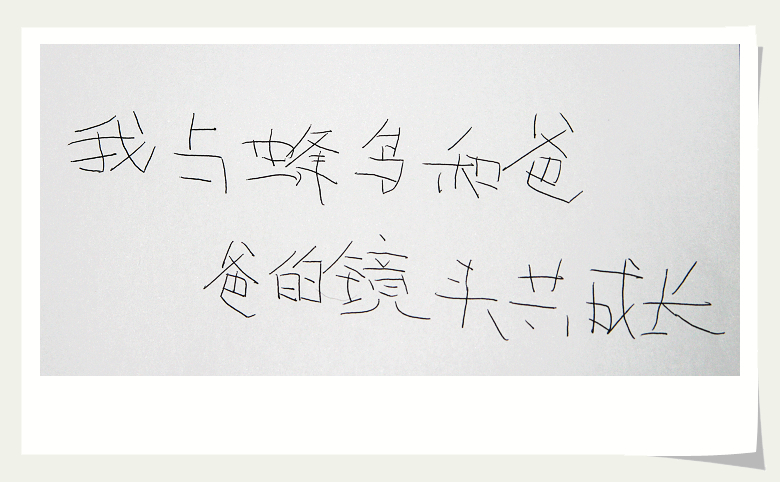 我与蜂鸟和爸
爸的镜头共成长